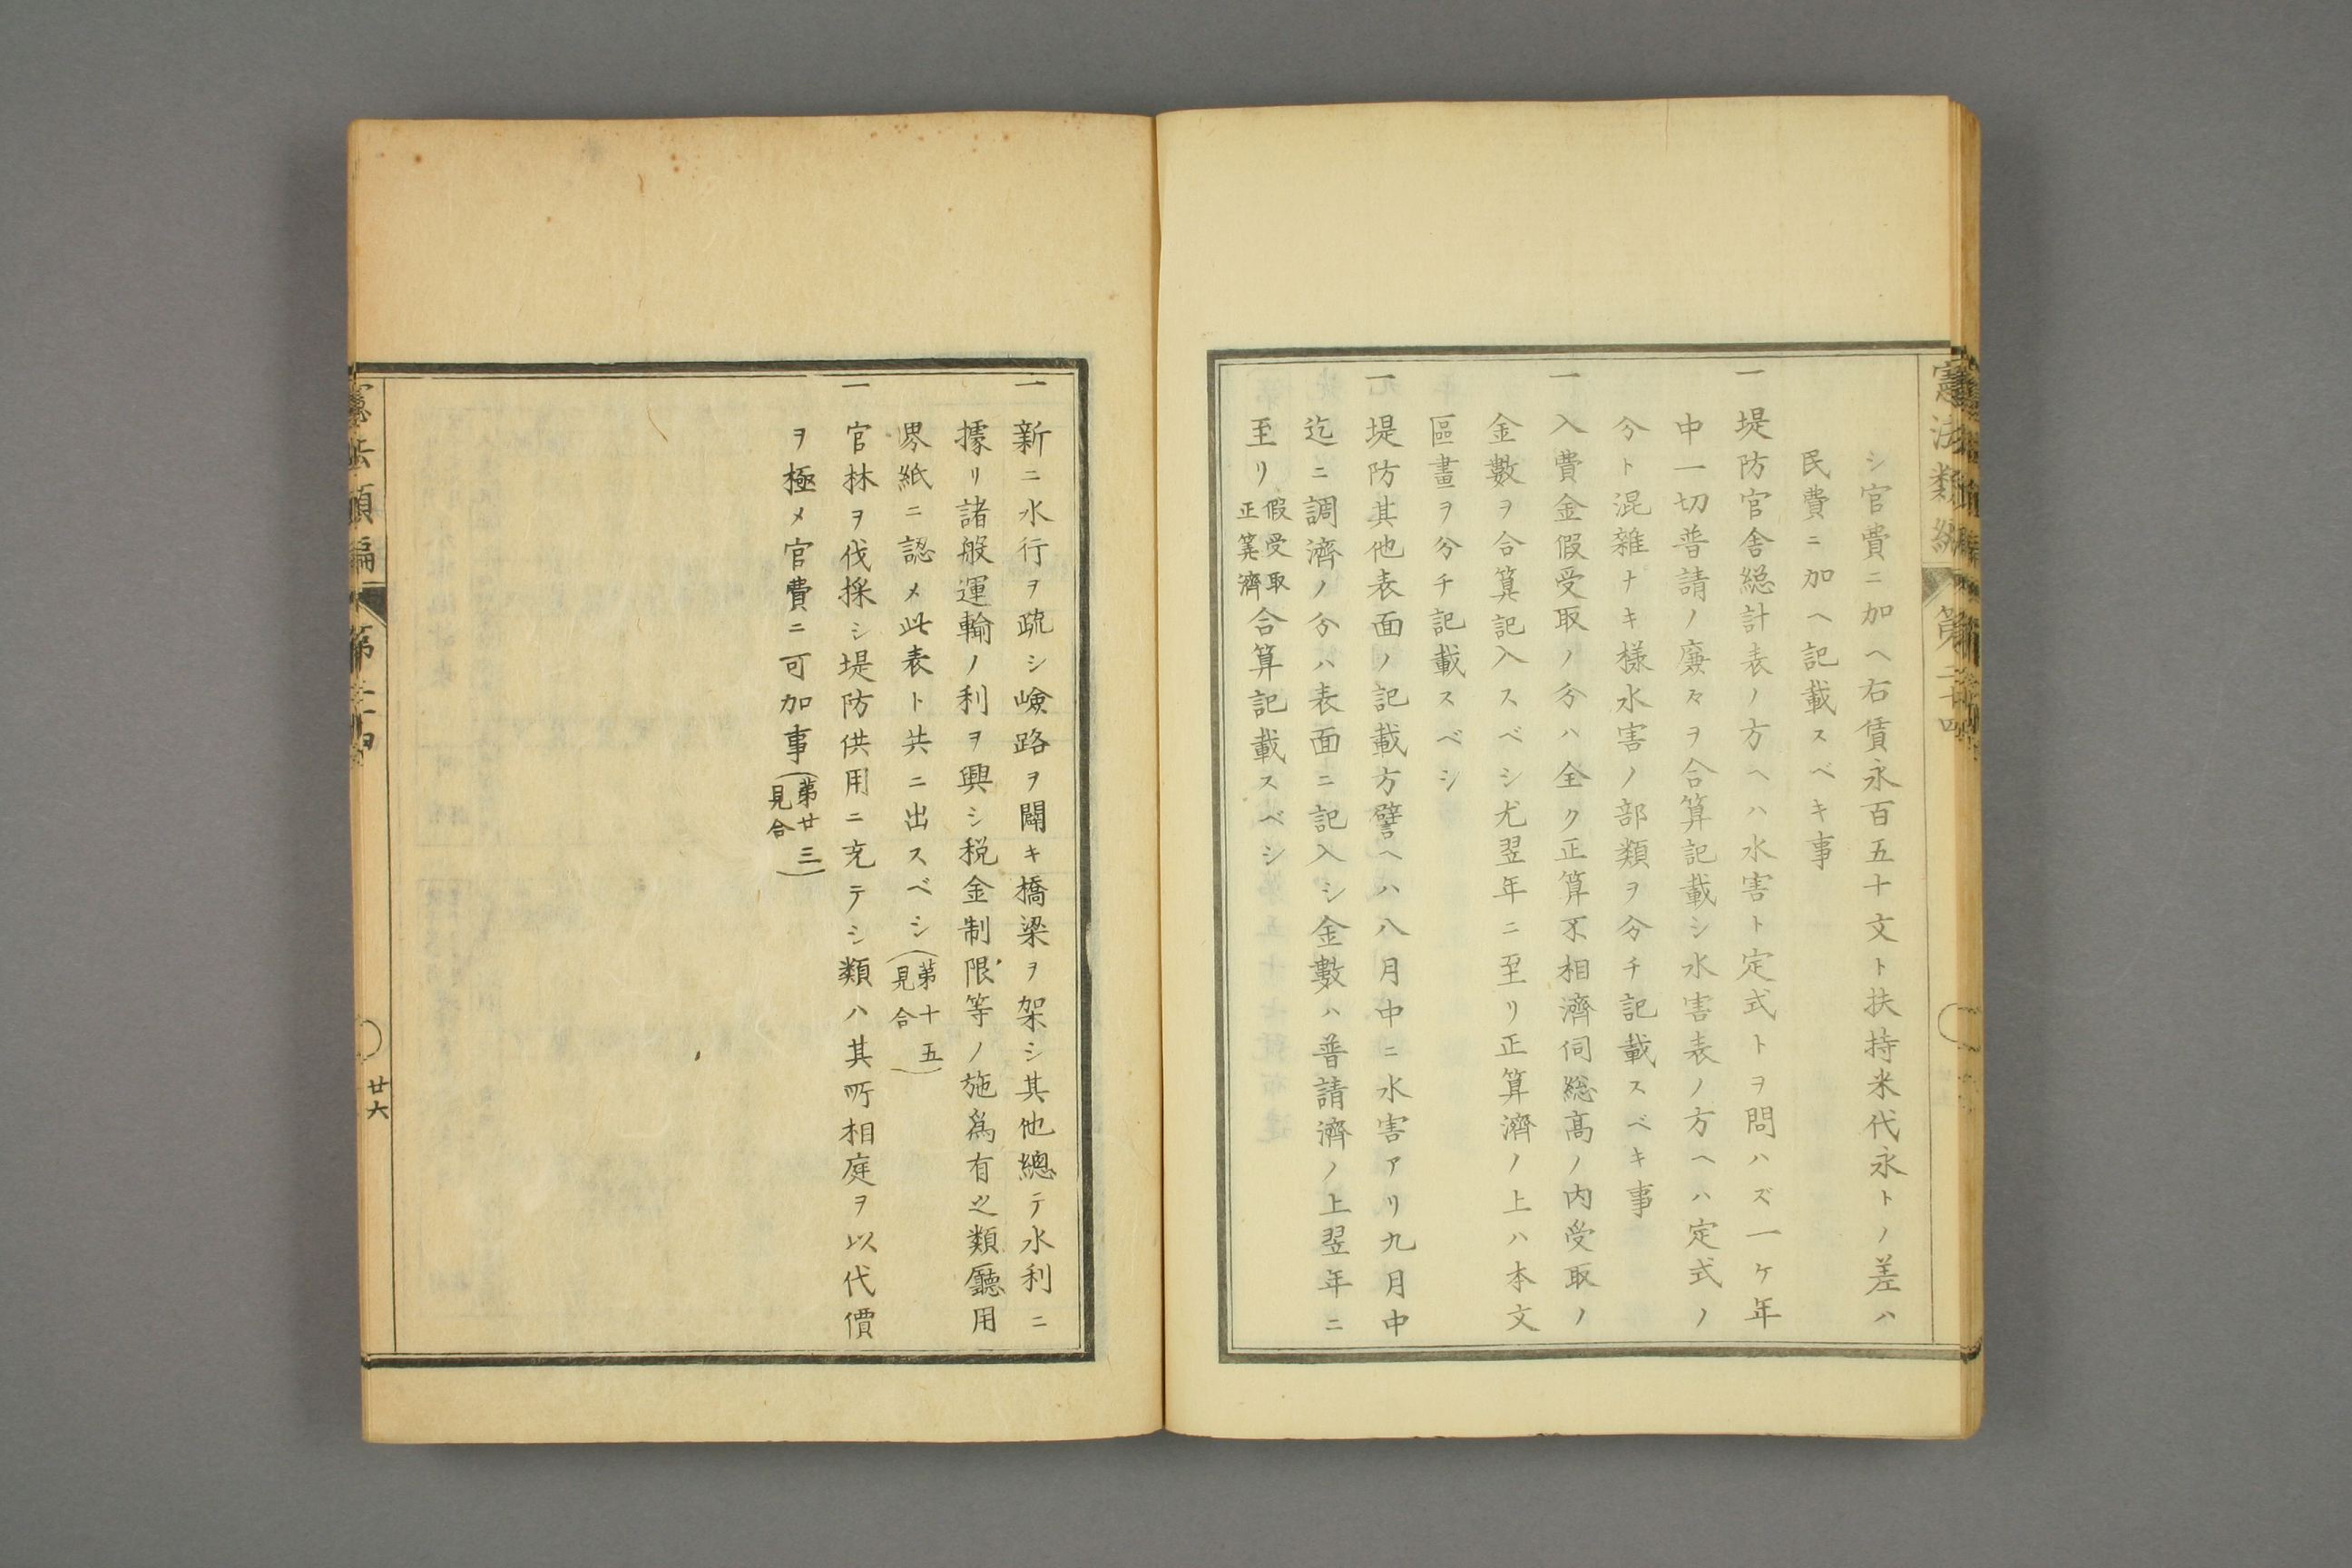 憲法類編
第二十四
シ官費ニ加ヘ右賃永百五十文ト扶持米代永トノ差ハ
民費ニ加ヘ記載スベキ事
一堤防官舎総計表ノ方ヘハ水害ト定式トヲ問ハズ一ケ年
中一切普請ノ廉々ヲ合算記載シ水害表ノ方ヘハ定式ノ
分ト混雑ナキ様水害ノ部類ヲ分チ記載スベキ事
一入費金假受取ノ分ハ全ク正算不相濟伺総高ノ内受取ノ
金數ヲ合算記入スベシ尤翌年ニ至リ正算濟ノ上ハ本文
區畫ヲ分チ記載スベシ
一堤防其他表面ノ記載方譬ヘハ八月中ニ水害アリ九月中
迄ニ調濟ノ分ハ表面ニ記入シ金數ハ普請濟ノ上翌年ニ
至リ假受取正筭濟合算記載スベシ
一新ニ水行ヲ疏シ嶮路ヲ闢キ橋梁ヲ架シ其他總テ水利ニ
據リ諸般運輸ノ利ヲ興シ税金制限等ノ施爲有之類廳用
界紙ニ認メ此表ト共ニ出スベシ(第十五見合)
一官林ヲ伐採シ堤防供用ニ充テシ類ハ其所相庭ヲ以代價
ヲ極メ官費ニ可加事(第廿三見合)
憲法類編
第二十四
廿六